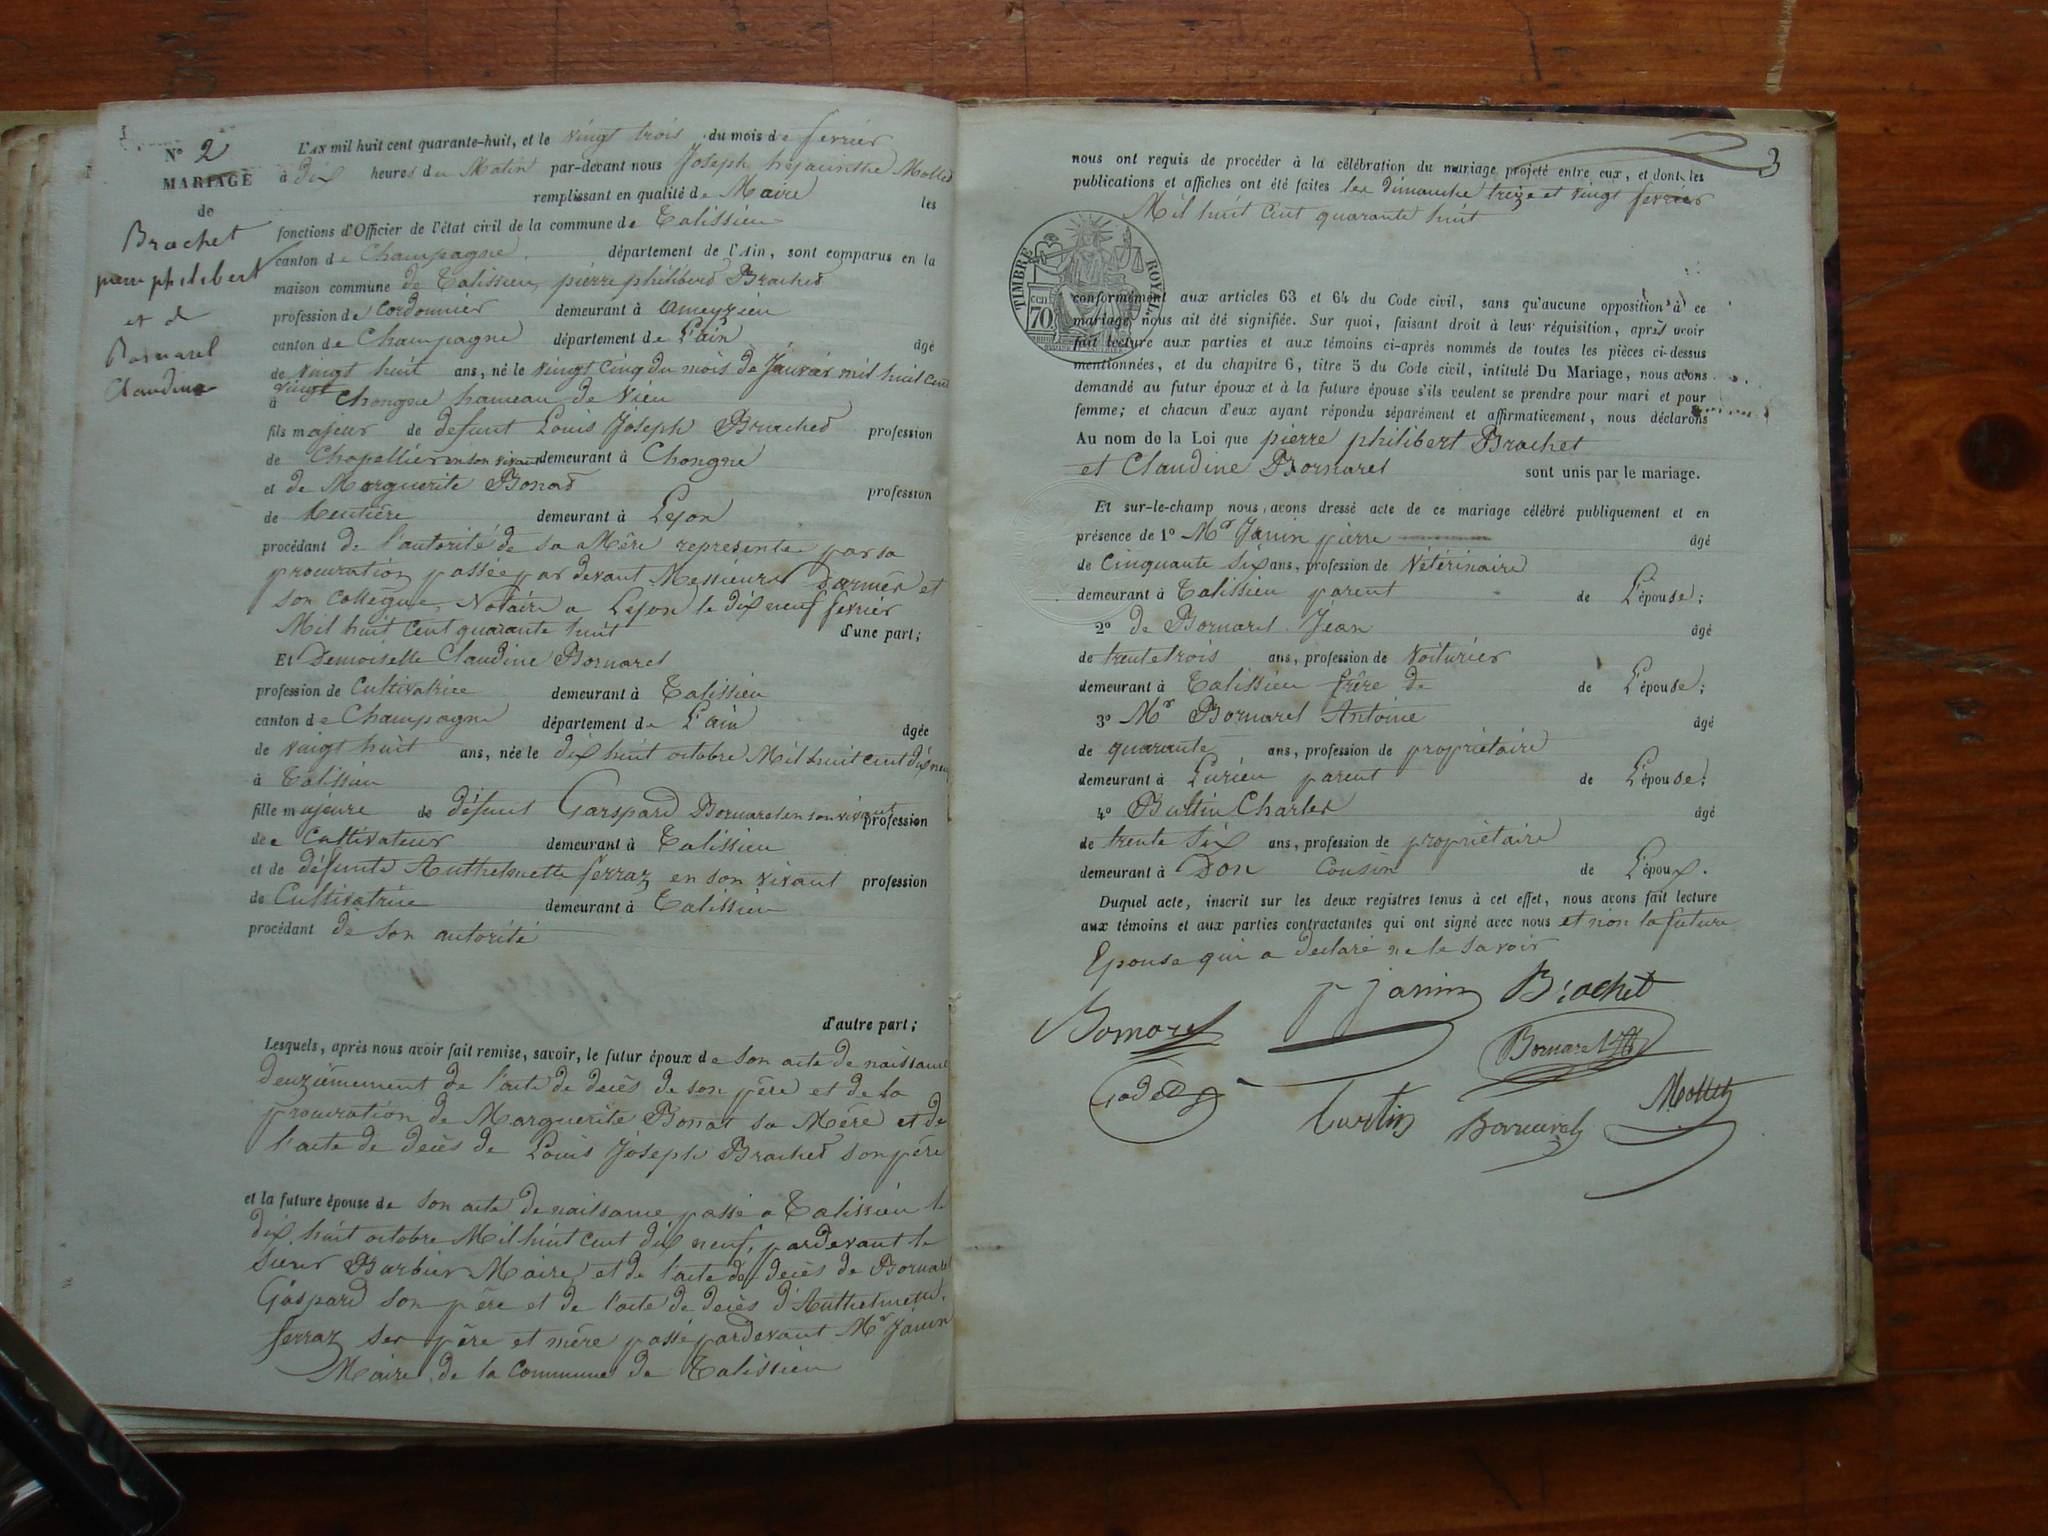 N° 2
MARIAGE
de
Brachet
pierre philibert
et de
Bornarel
Claudine
L'AN mil huit cent quarante-huit, et le vingt trois du mois de fevrier
à dix heures du Matin par-devant nous Joseph hyacinthe Mollet
remplissant en qualité de Maire les
fonctions d'Officier de l'état civil de la commune de Talissieu
canton de Champagne département de l'Ain, sont comparus en la
maison commune de Talissieu pierre philiberd Brached
profession de Cordonnier demeurant à ameyzieu
canton de Champagne département de L'ain âgé
de vingt huit ans, né le vingt Cinq du mois de Janvier mil huit cent
vingt
à Chongne hameau de Vieu
fils majeur de defunt Louis Joseph Brached profession
de Chapellier en son vivant demeurant à Chongne
et de Marguerite Bonad profession
de Rentière demeurant à Lyon
procédant de l'autorité de sa Mère representée par sa
procuration passée par devant Messieurs Darmès et
son collègue, Notaire a Lyon le dix neuf fevrier
Mil huit cent quarante huit d'une part;
Et Demoiselle Claudine Bornarel
profession de Cultivatrice demeurant à Talissieu
canton de Champagne département de L'ain âgée
de vaigt huit ans, née le dix huit octobre Mil huit cent dix neuf
à Talissieu
fille majeure de défunt Garspard Bornarel en son vivant profession
de Cultivateur demeurant à Talissieu
et de défunte Anthelmette ferraz en son vivant profession
de Cultivatrice demeurant à Talissieu
procédant de son autorité
d'autre part;
Lesquels, après nous avoir fait remise, savoir, le futur époux de son acte de naissance
deuzièmement de l'acte de decès de son père et de la
procuration de Marguerite Bonat sa Mère et de
l'acte de decès de Louis Joseph Brached son père
et la future épouse de son acte de naissance passé a Talissieu le
dix huit octobre Mil huit cent dix neuf, pardevant le
sieur Barbier Maire, et de l'acte de decès de Bornarel
Gaspard son père et de l'acte de decès d'Anthelmette
ferraz ses père et mère passé pardevant Mr Janin
Maire de la Commune de Talissieu
3
nous ont requis de procéder à la célébration du mariage projeté entre eux, et dont les
publications et affiches ont été faites les dimanche treize et vingt fevrier
Mil huit cent quarante huit
TIMBRE ROYAL
CEN
70
conformément aux articles 63 et 64 du Code civil, sans qu'aucune opposition à ce
mariage nous ait été signifiée. Sur quoi, faisant droit à leur réquisition, après avoir
fait lecture aux parties et aux témoins ci-après nommés de toutes les pièces ci-dessus
mentionnées, et du chapitre 6, titre 5 du Code civil, intitulé Du Mariage, nous avons
demandé au futur époux et à la future épouse s'ils veulent se prendre pour mari et pour
femme; et chacun d'eux ayant répondu séparément et affirmativement, nous déclarons
Au nom de la Loi que pierre philibert Brachet
et Claudine Bornarel sont unis par le mariage.
Et sur-le-champ nous avons dressé acte de ce mariage célébré publiquement et en
présence de 1° Mr Janin pierre âgé
de Cinquante six ans, profession de Vétérinaire
demeurant à Talissieu parent de L'épouse;
2° de Bornarel Jean âgé
de trente trois ans, profession de Voiturier
demeurant à Talissieu frère de de L'épouse;
3° Mr Bornarel Antoine âgé
de quarante ans, profession de propriétaire
demeurant à Lurieu parent de L'épouse;
4° Bultin Charles âgé
de trente six ans, profession de propriétaire
demeurant à Don Cousin de L'époux.
Duquel acte, inscrit sur les deux registres tenus à cet effet, nous avons fait lecture
aux témoins et aux parties contractantes qui ont signé avec nous et non la future
Epouse qui a declaré ne le savoir
P Janin Brachet
Bornarel
Bornarel
Bornarel Mollet